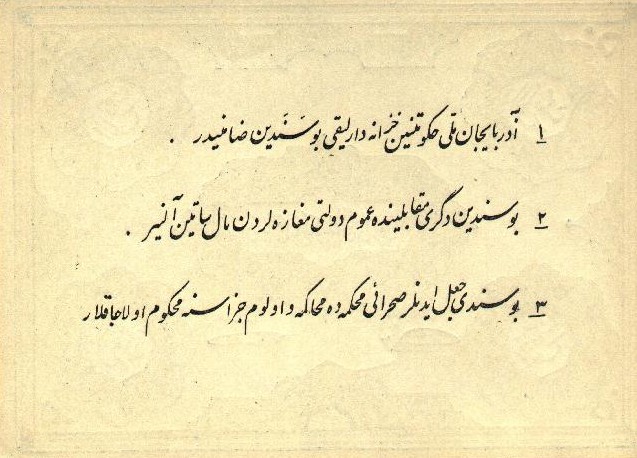 ۱ آذربایجان ملی حکومتنین خزانه دارلیقی بو سَنَدین ضامنیدر .
۲ بو سندین دگری مقابلینده عموم دولتی مغازه لردن مال ساتین آلنیر .
۳ بو سندی جعل ایدنلر صحرائی محکمه ده محاکمه و اولوم جزاسنه محکوم اولاجاقلار